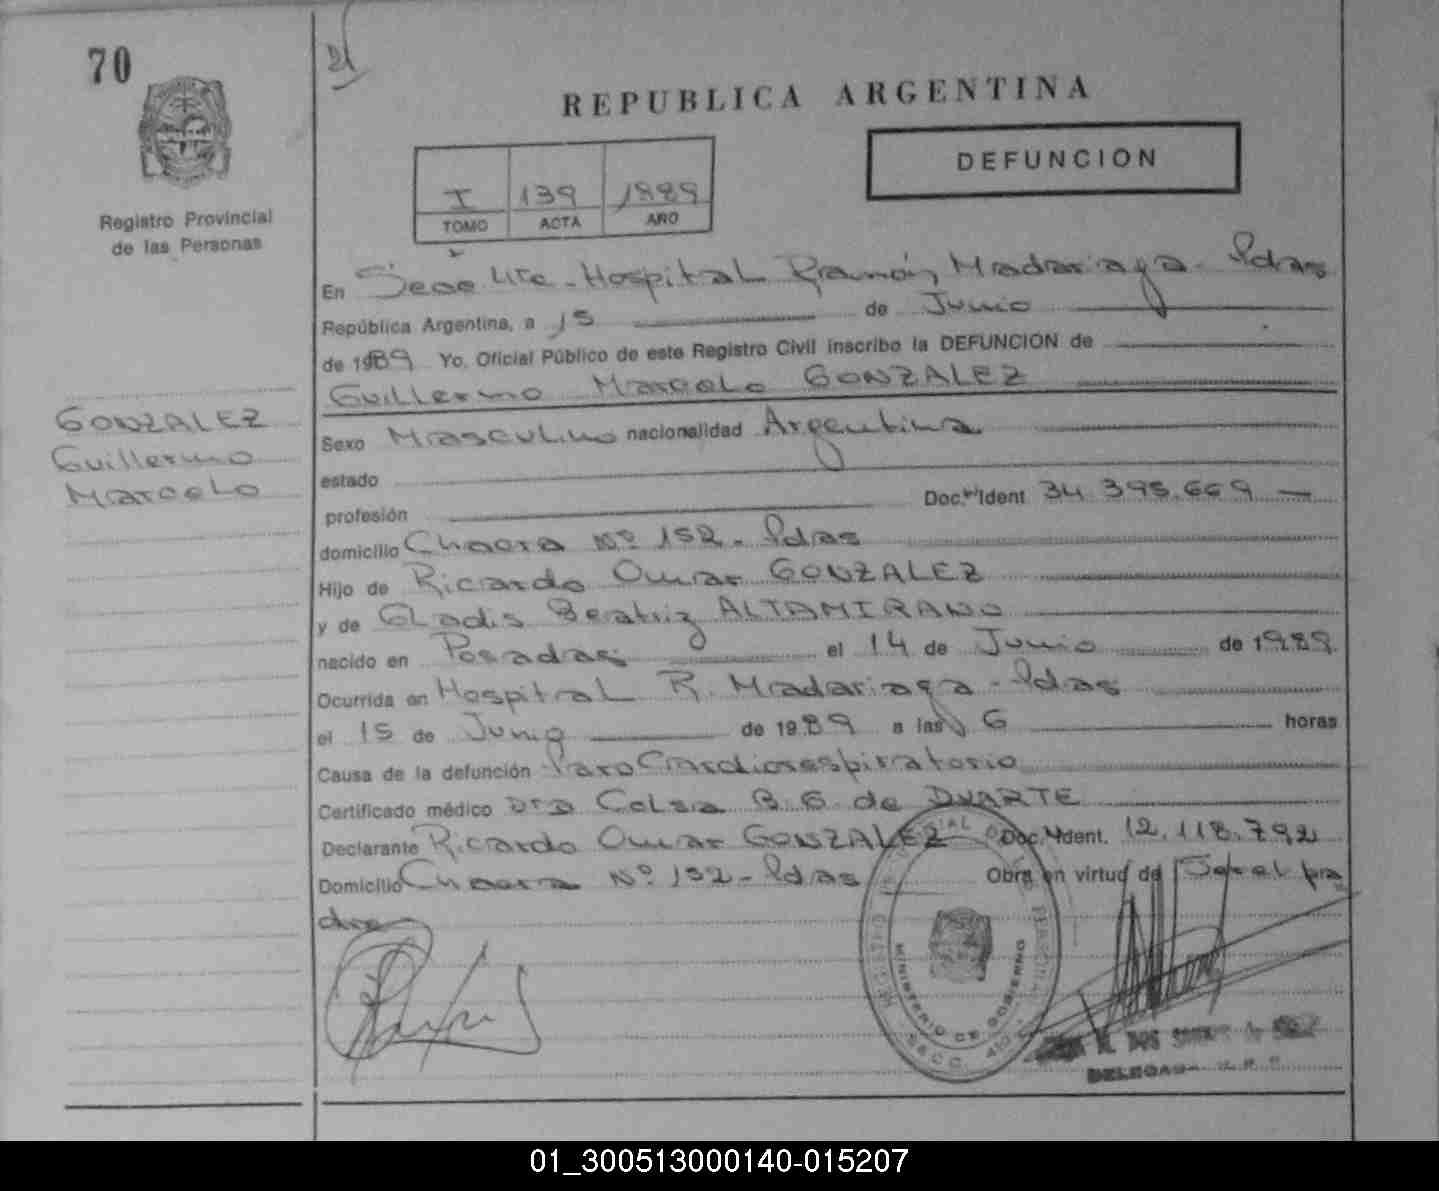 70
REPUBLICA ARGENTINA
DEFUNCION
I 139 1989
TOMO ACTA AÑO
Registro Provincial
de las Personas
En Secc 4ta - Hospital Ramón Madariaga - Pdas
República Argentina, a 15 de Junio
de 1989 Yo, Oficial Público de este Registro Civil inscribo la DEFUNCION de
Guillermo Marcelo GONZALEZ
GONZALEZ
Guillermo
Marcelo
Sexo Masculino nacionalidad Argentina
estado
profesión Doc. Ident 34.395.669
domicilio Chacra Nº 152 - Pdas
Hijo de Ricardo Omar GONZALEZ
y de Gladis Beatriz ALTAMIRANO
nacido en Posadas el 14 de Junio de 1989
Ocurrida en Hospital R. Madariaga - Pdas
el 15 de Junio de 1989 a las 6 horas
Causa de la defunción Paro Cardiorespiratorio
Certificado médico Dra Celsa B. G. de DUARTE
Declarante Ricardo Omar GONZALEZ Doc. Ident. 12.118.792
Domicilio Chacra Nº 152 - Pdas Obra en virtud de Ser el pa
dre
MINISTERIO DE GOBIERNO
01_300513000140-015207